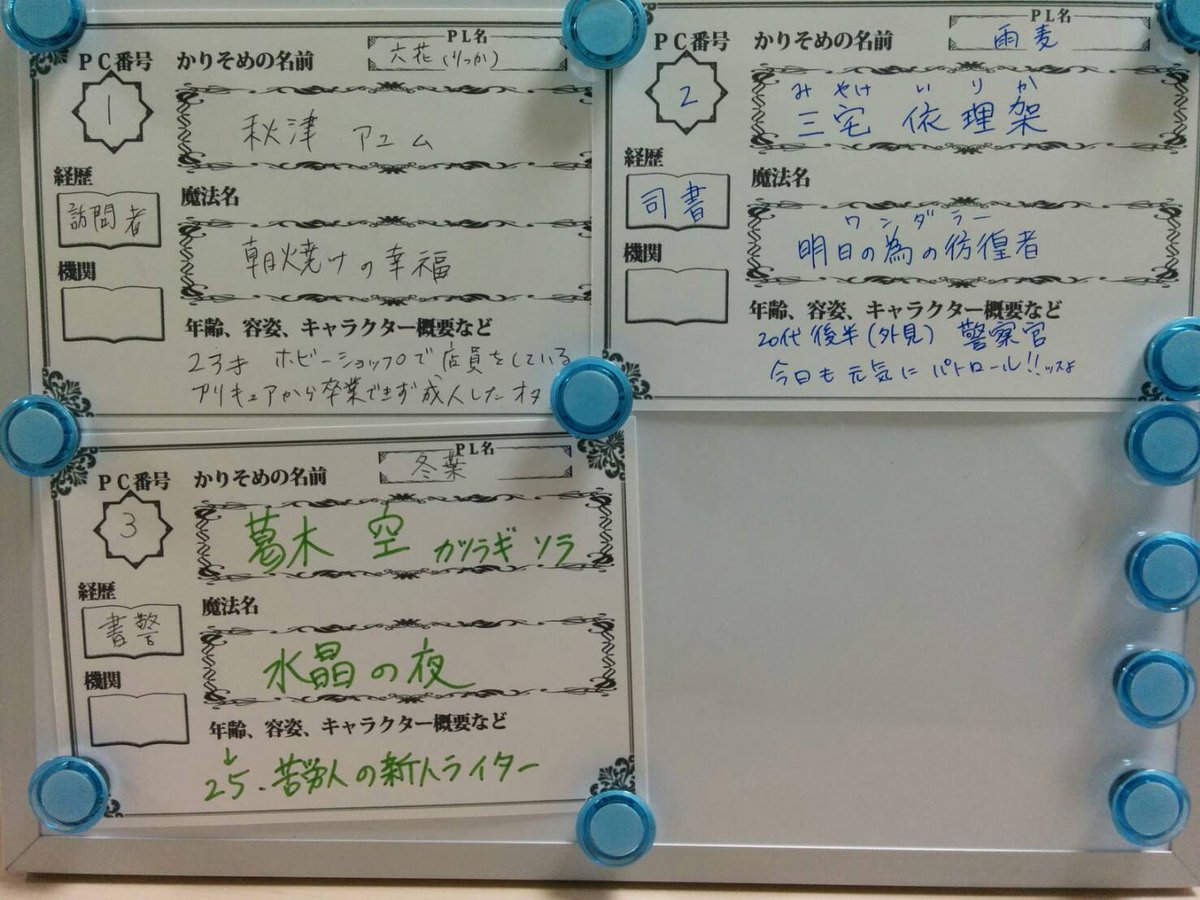 PC番号 かりそめの名前 PL名
六花(りっか)
1
秋津 アユム
経歴
訪問者
魔法名
朝焼けの幸福
機関
年齢、容姿、キャラクター概要など
23才 ホビーショップで店員をしている
プリキュアから卒業できず成人したオタ
PC番号 かりそめの名前 PL名
雨麦
2
みやけ いりか
三宅 依理架
経歴
司書
魔法名
ワンダラー
明日の為の彷徨者
機関
年齢、容姿、キャラクター概要など
20代後半(外見) 警察官
今日も元気にパトロール!!ッスよ
PC番号 かりそめの名前 PL名
冬葉
3
葛木 空 カツラギ ソラ
経歴
書警
魔法名
水晶の夜
機関
年齢、容姿、キャラクター概要など
↓
25、苦労人の新人ライター